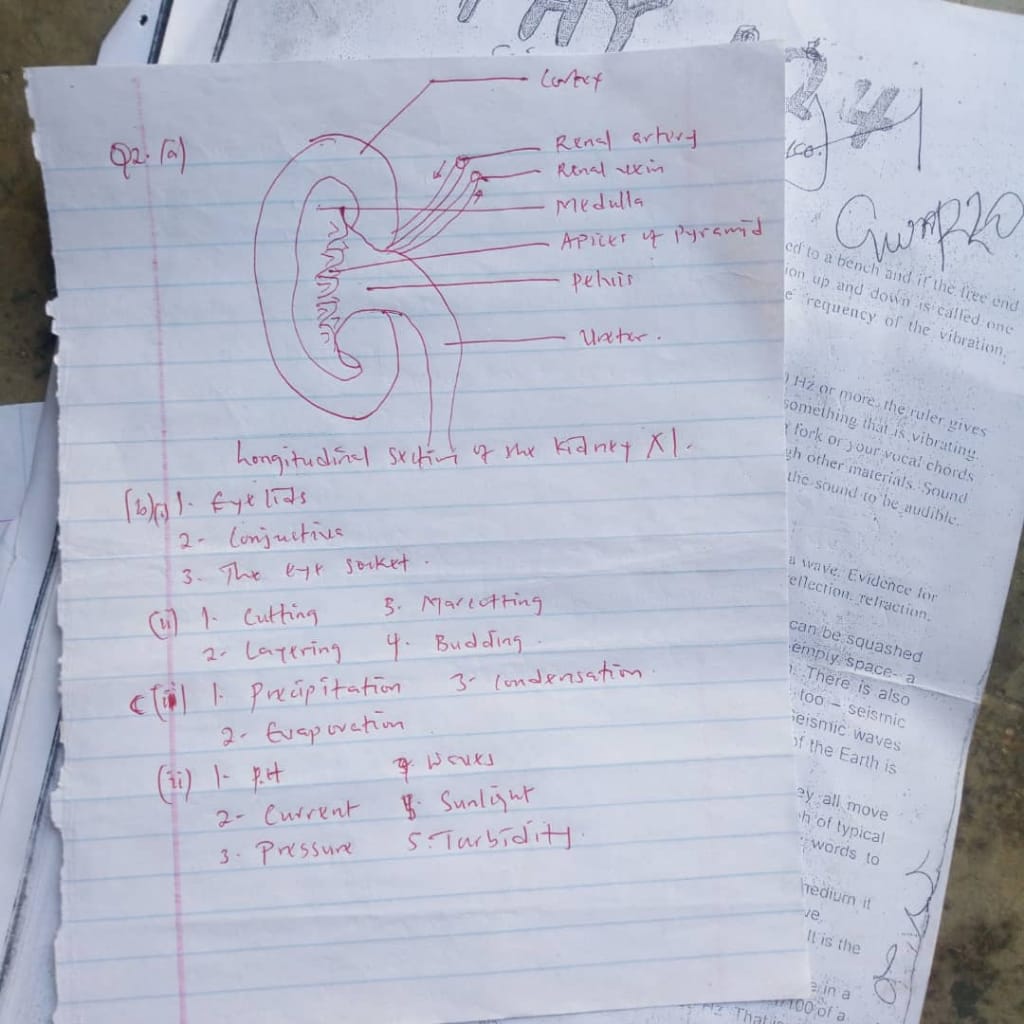 Cortex
Q2. (a)
Renal artery
Renal vein
Medulla
Apices of Pyramid
Pelvis
Ureter.
Longitudinal section of the kidney X1.
(b)(i) 1. Eye lids
2- Conjuctiva
3. The eye socket.
(ii) 1. Cutting 3. Marcotting
2- Layering 4. Budding.
C(i) 1. Precipitation 3- Condensation.
2- Evaporation
(ii) 1- P.H 4 Waves
2- Current 5. Sunlight
3. Pressure 5. Turbidity.
24
ed to a bench and if the free end
ion up and down is called one
requency of the vibration.
Hz or more, the ruler gives
something that is vibrating.
fork or your vocal chords
gh other materials. Sound
the sound to be audible.
a wave. Evidence for
reflection, refraction,
can be squashed
empty space- a
There is also
too – seismic
Seismic waves
of the Earth is
ey all move
h of typical
words to
medium it
ve.
It is the
e in a
1/100 of a
Hz That is